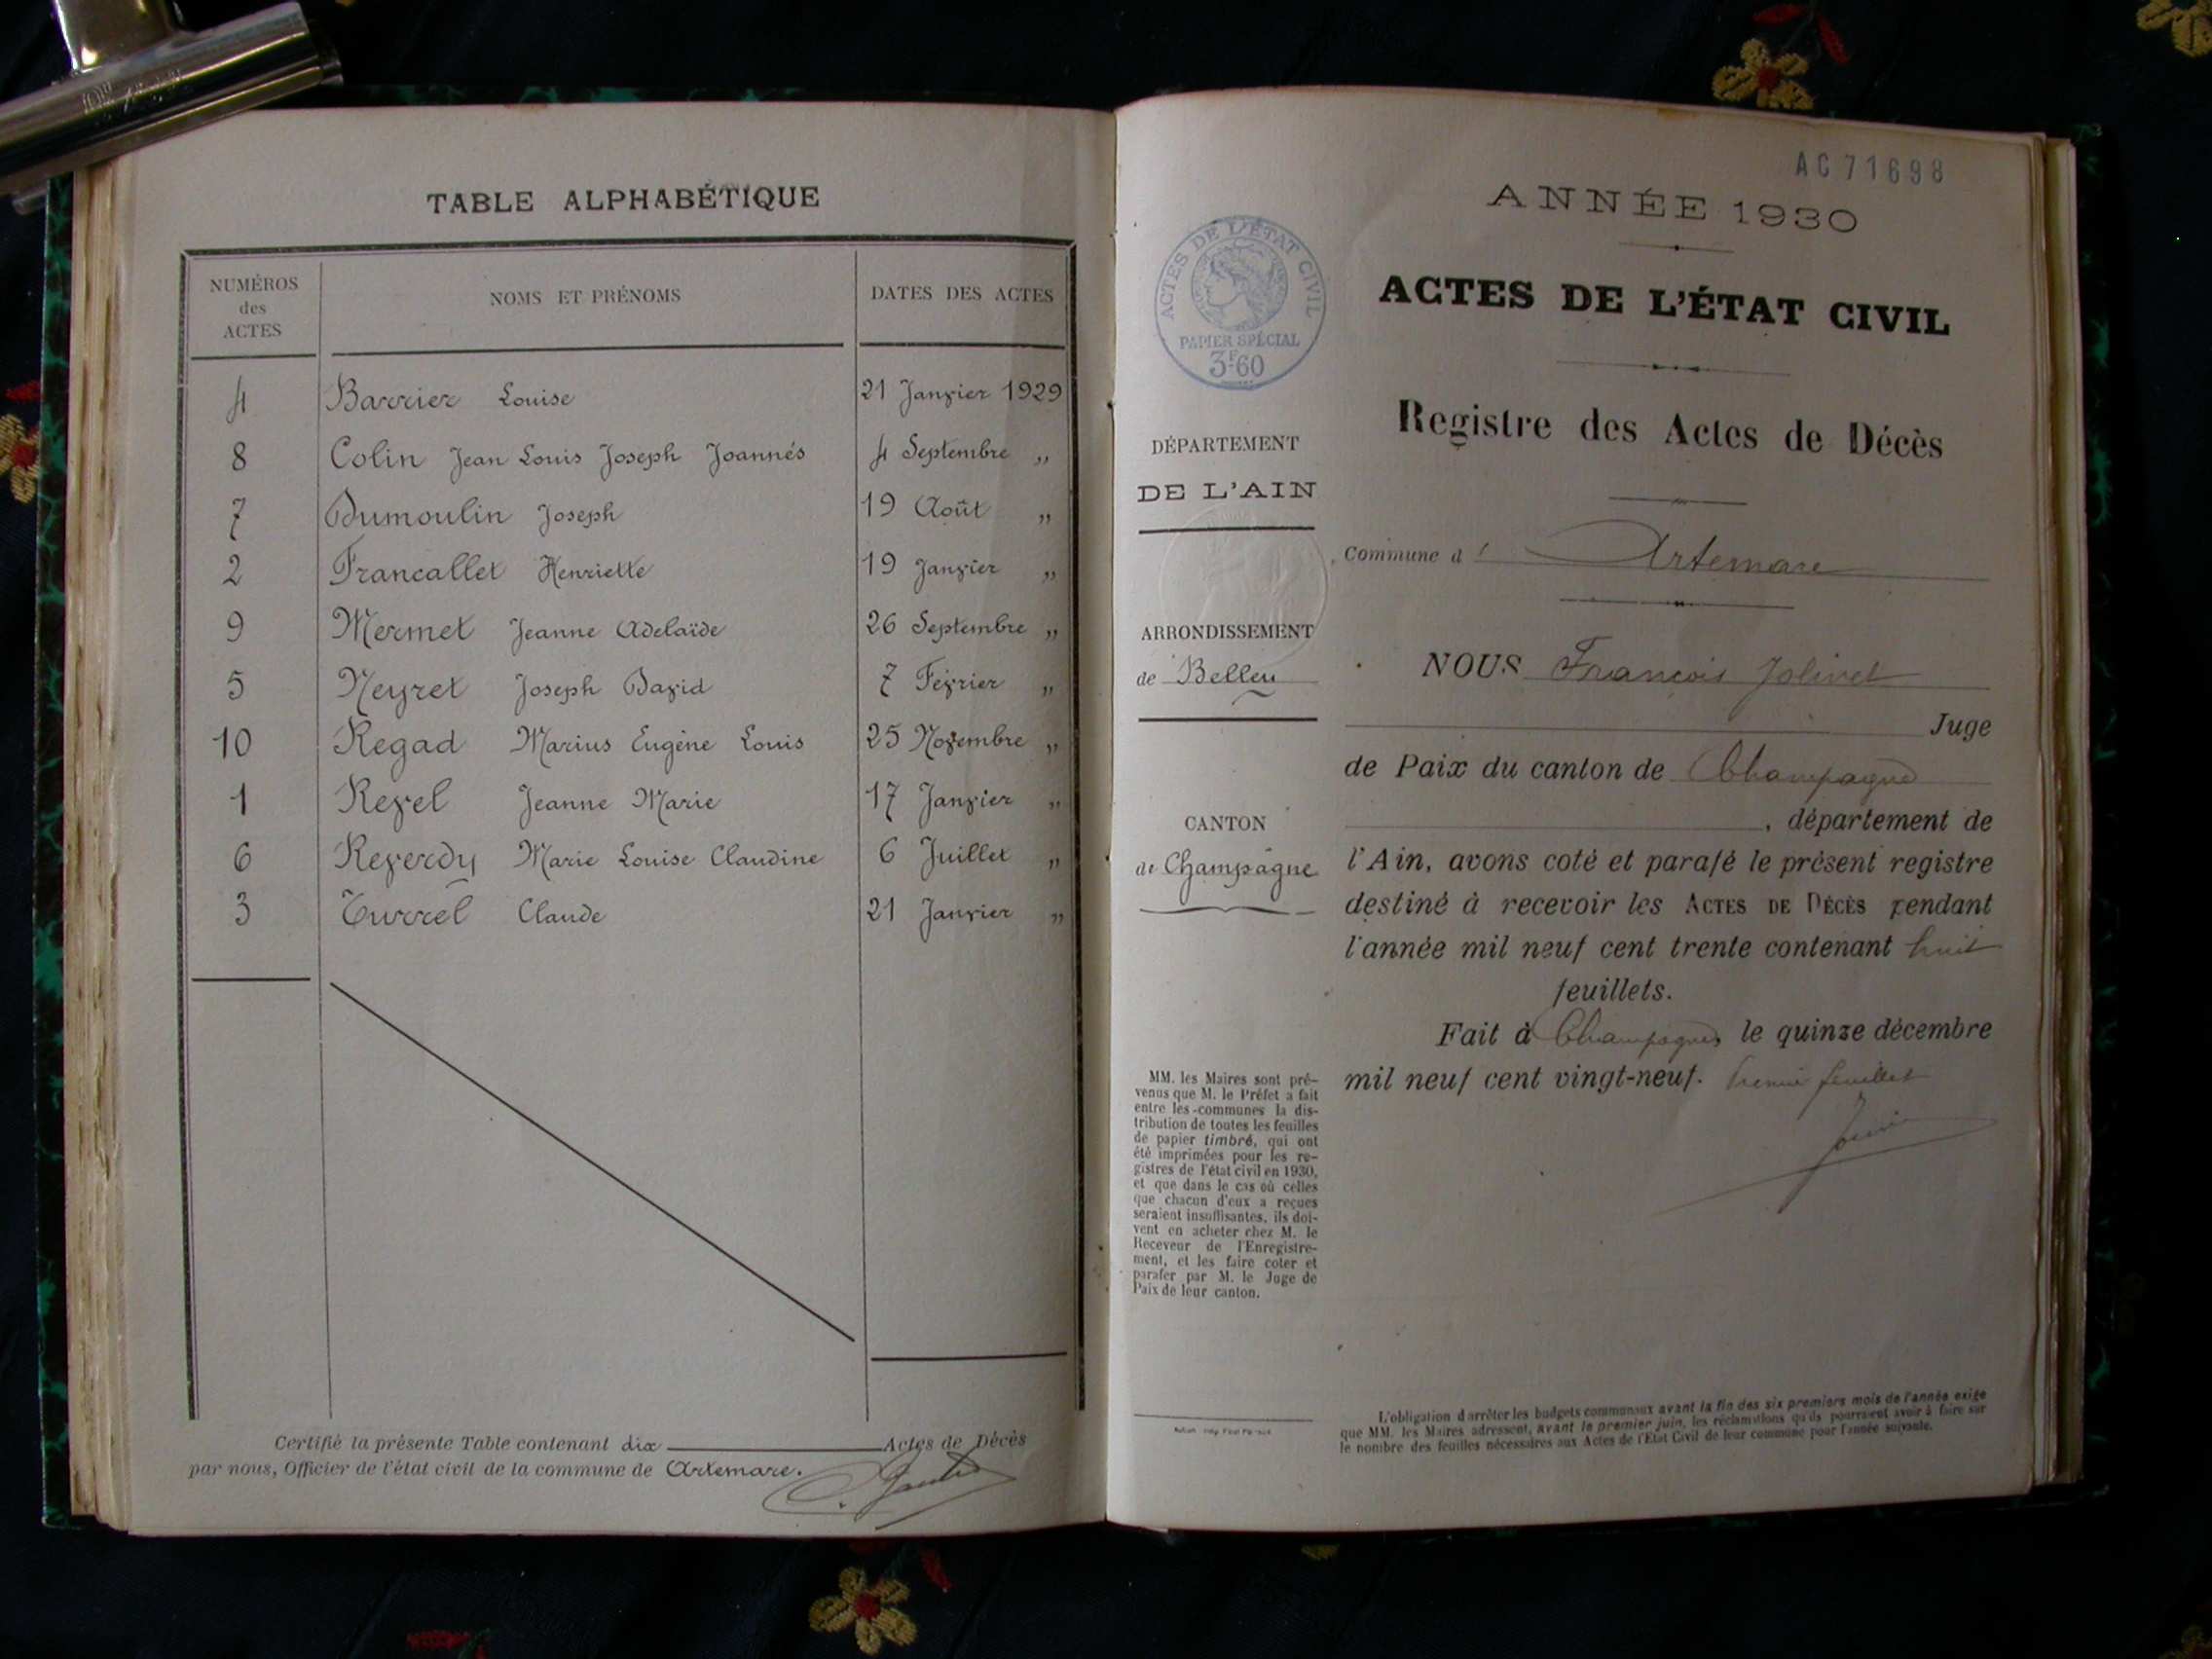 TABLE ALPHABÉTIQUE
NUMÉROS
des
ACTES
NOMS ET PRÉNOMS
DATES DES ACTES
4 Barrier Louise 21 Janvier 1929
8 Colin Jean Louis Joseph Joannés 4 Septembre "
7 Dumoulin Joseph 19 Août "
2 Francallet Henriette 19 Janvier "
9 Mermet Jeanne Adelaïde 26 Septembre "
5 Neyret Joseph David 7 Février "
10 Regad Marius Eugène Louis 25 Novembre "
1 Revel Jeanne Marie 17 Janvier "
6 Reverdy Marie Louise Claudine 6 Juillet "
3 Turrel Claude 21 Janvier "
Certifié la présente Table contenant dix Actes de Décès
par nous, Officier de l'état civil de la commune de Artemare.
AC 71698
ANNÉE 1930
ACTES DE L'ÉTAT CIVIL
PAPIER SPÉCIAL
3F60
ACTES DE L'ÉTAT CIVIL
Registre des Actes de Décès
DÉPARTEMENT
DE L'AIN
Commune d' Artemare
ARRONDISSEMENT
de Belley
NOUS François Jolivet
Juge
de Paix du canton de Champagne
, département de
CANTON
de Champagne
l'Ain, avons coté et parafé le présent registre
destiné à recevoir les ACTES DE DÉCÈS pendant
l'année mil neuf cent trente contenant huit
feuillets.
Fait à Champagne, le quinze décembre
mil neuf cent vingt-neuf. Premier feuillet
MM. les Maires sont pré-
venus que M. le Préfet a fait
entre les communes la dis-
tribution de toutes les feuilles
de papier timbré, qui ont
été imprimées pour les re-
gistres de l'état civil en 1930,
et que dans le cas où celles
que chacun d'eux a reçues
seraient insuffisantes, ils doi-
vent en acheter chez M. le
Receveur de l'Enregistre-
ment, et les faire coter et
parafer par M. le Juge de
Paix de leur canton.
L'obligation d'arrêter les budgets communaux avant la fin des six premiers mois de l'année exige
que MM. les Maires adressent, avant le premier juin, les réclamations qu'ils pourraient avoir à faire sur
le nombre des feuilles nécessaires aux Actes de l'Etat Civil de leur commune pour l'année suivante.